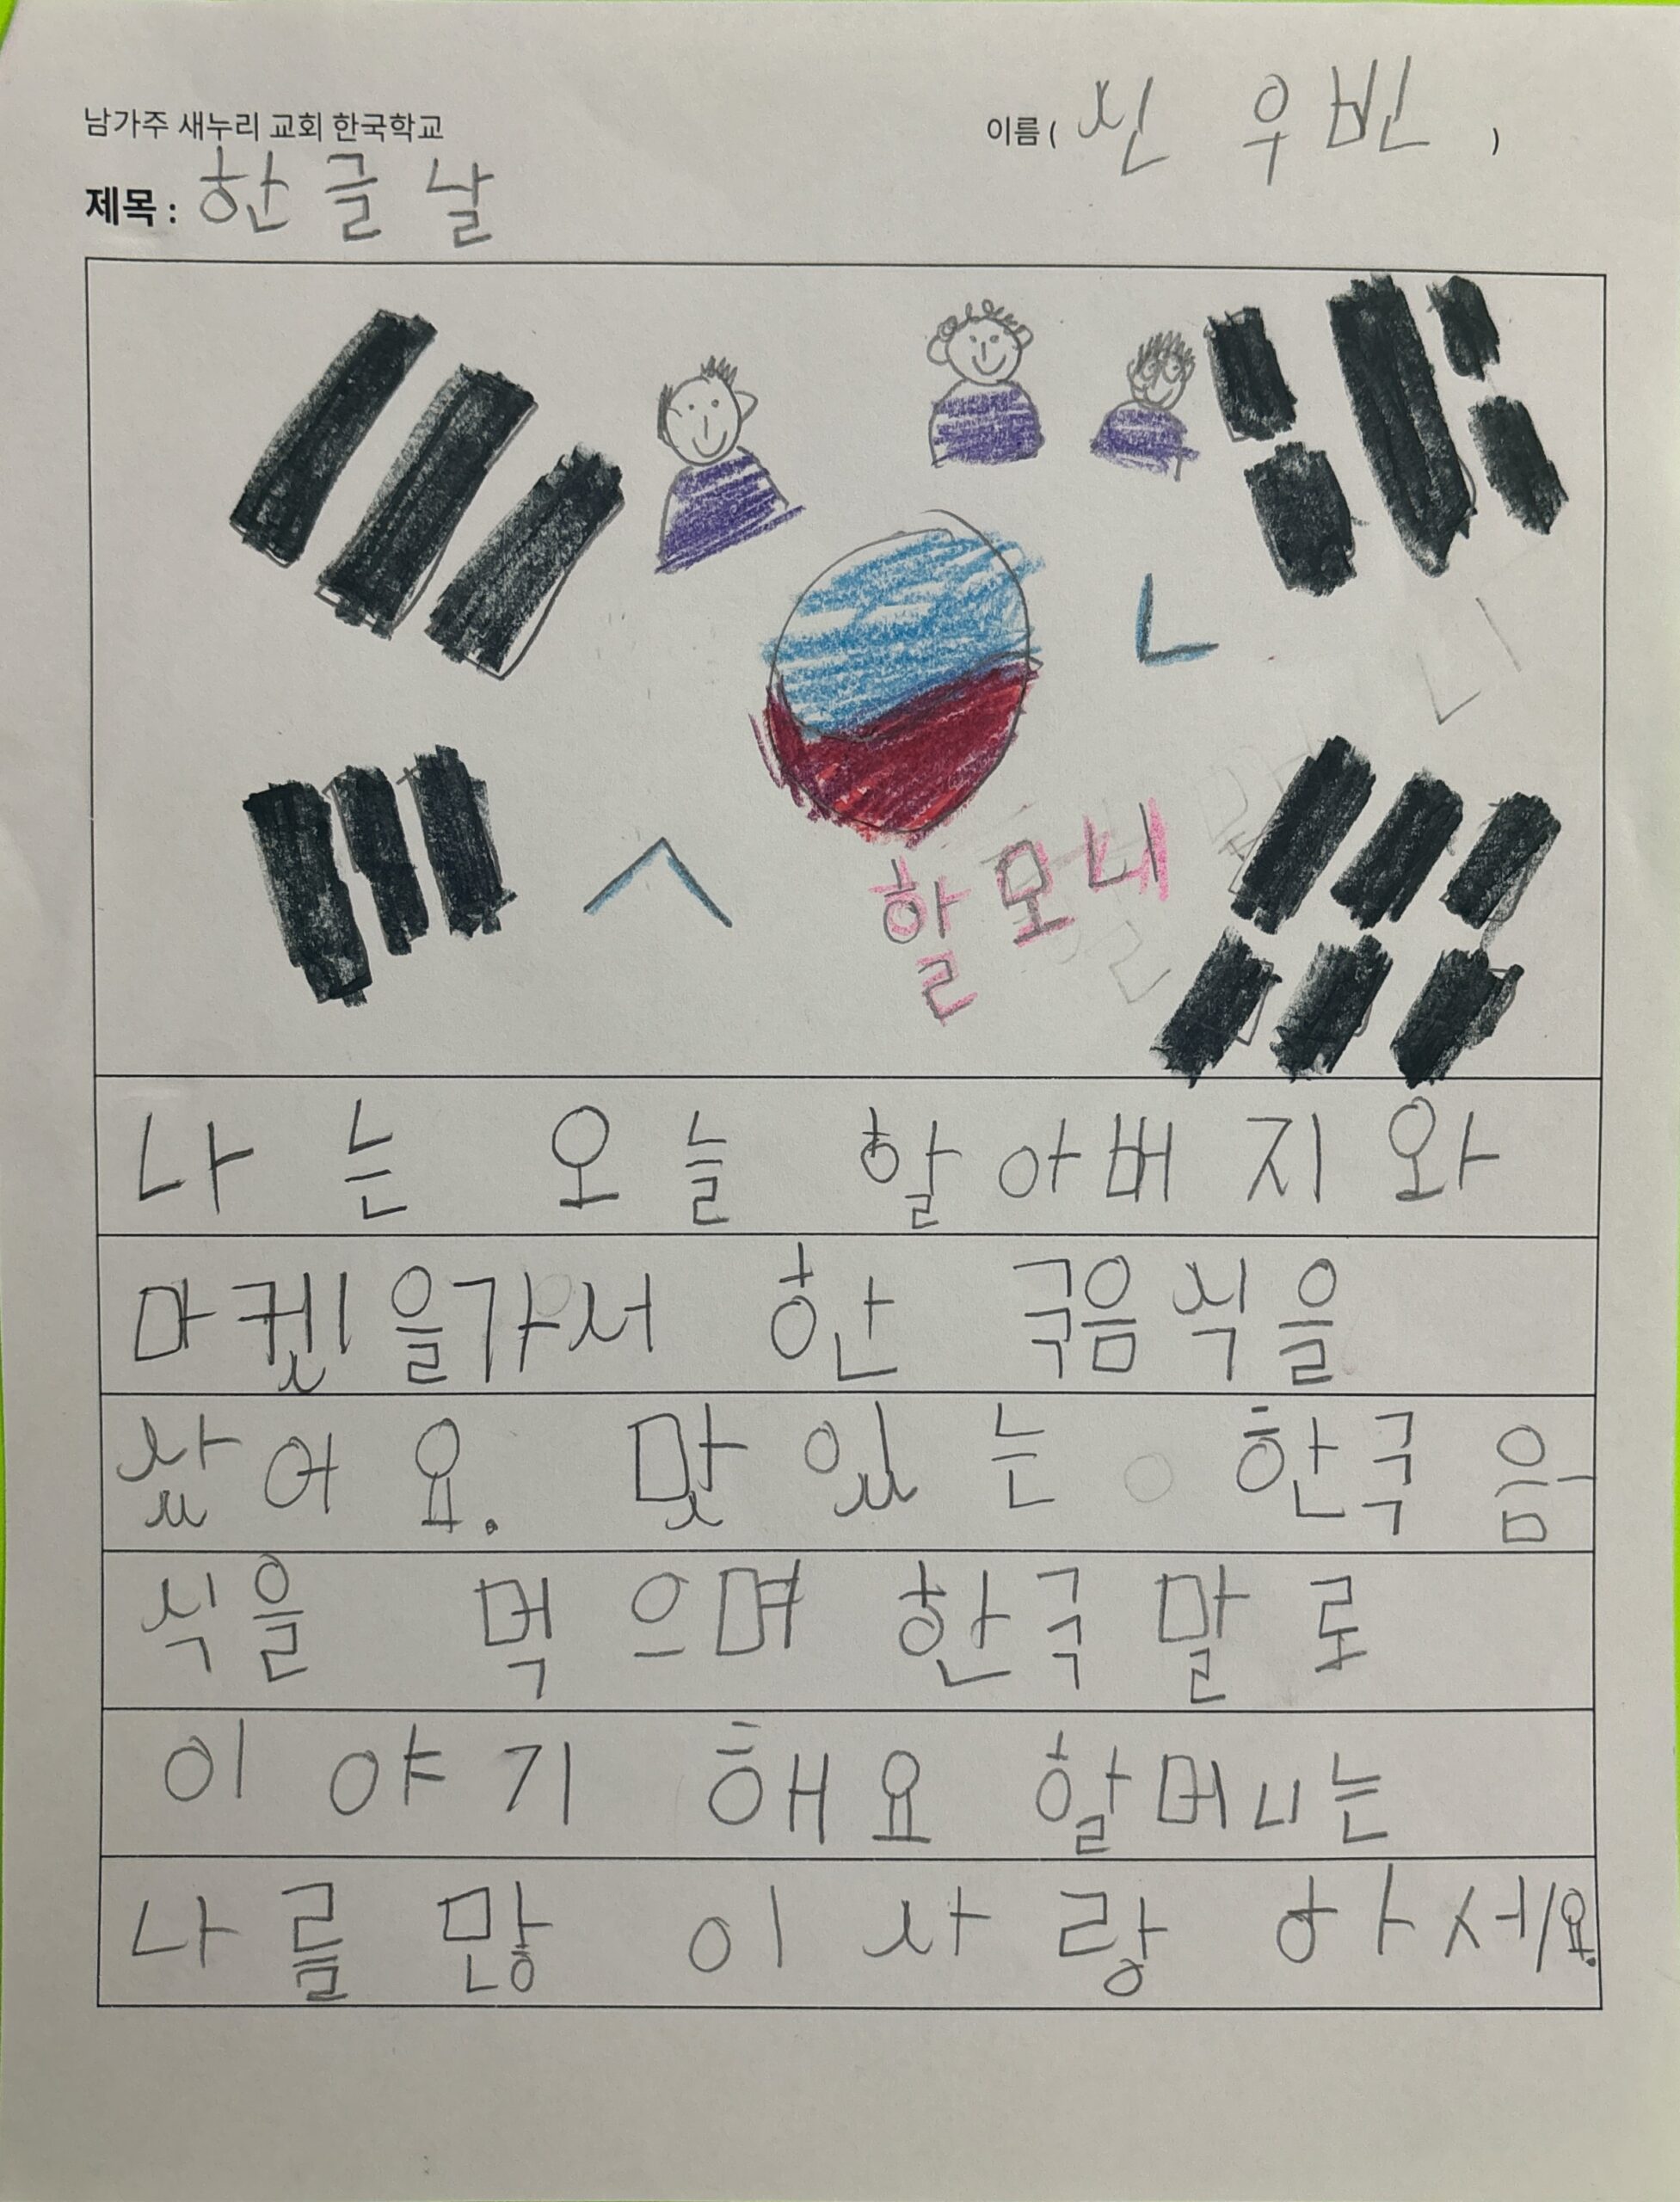 남가주 새누리 교회 한국학교
이름 ( 신 우빈 )
제목 : 한글날
ㄴ
ㅅ
할모네
나는 오늘 할아버지와
마켓을가서 한국음식을
샀어요. 맛있는 한국음
식을 먹으며 한국말로
이야기 해요 할머니는
나를 많이 사랑 하세요.